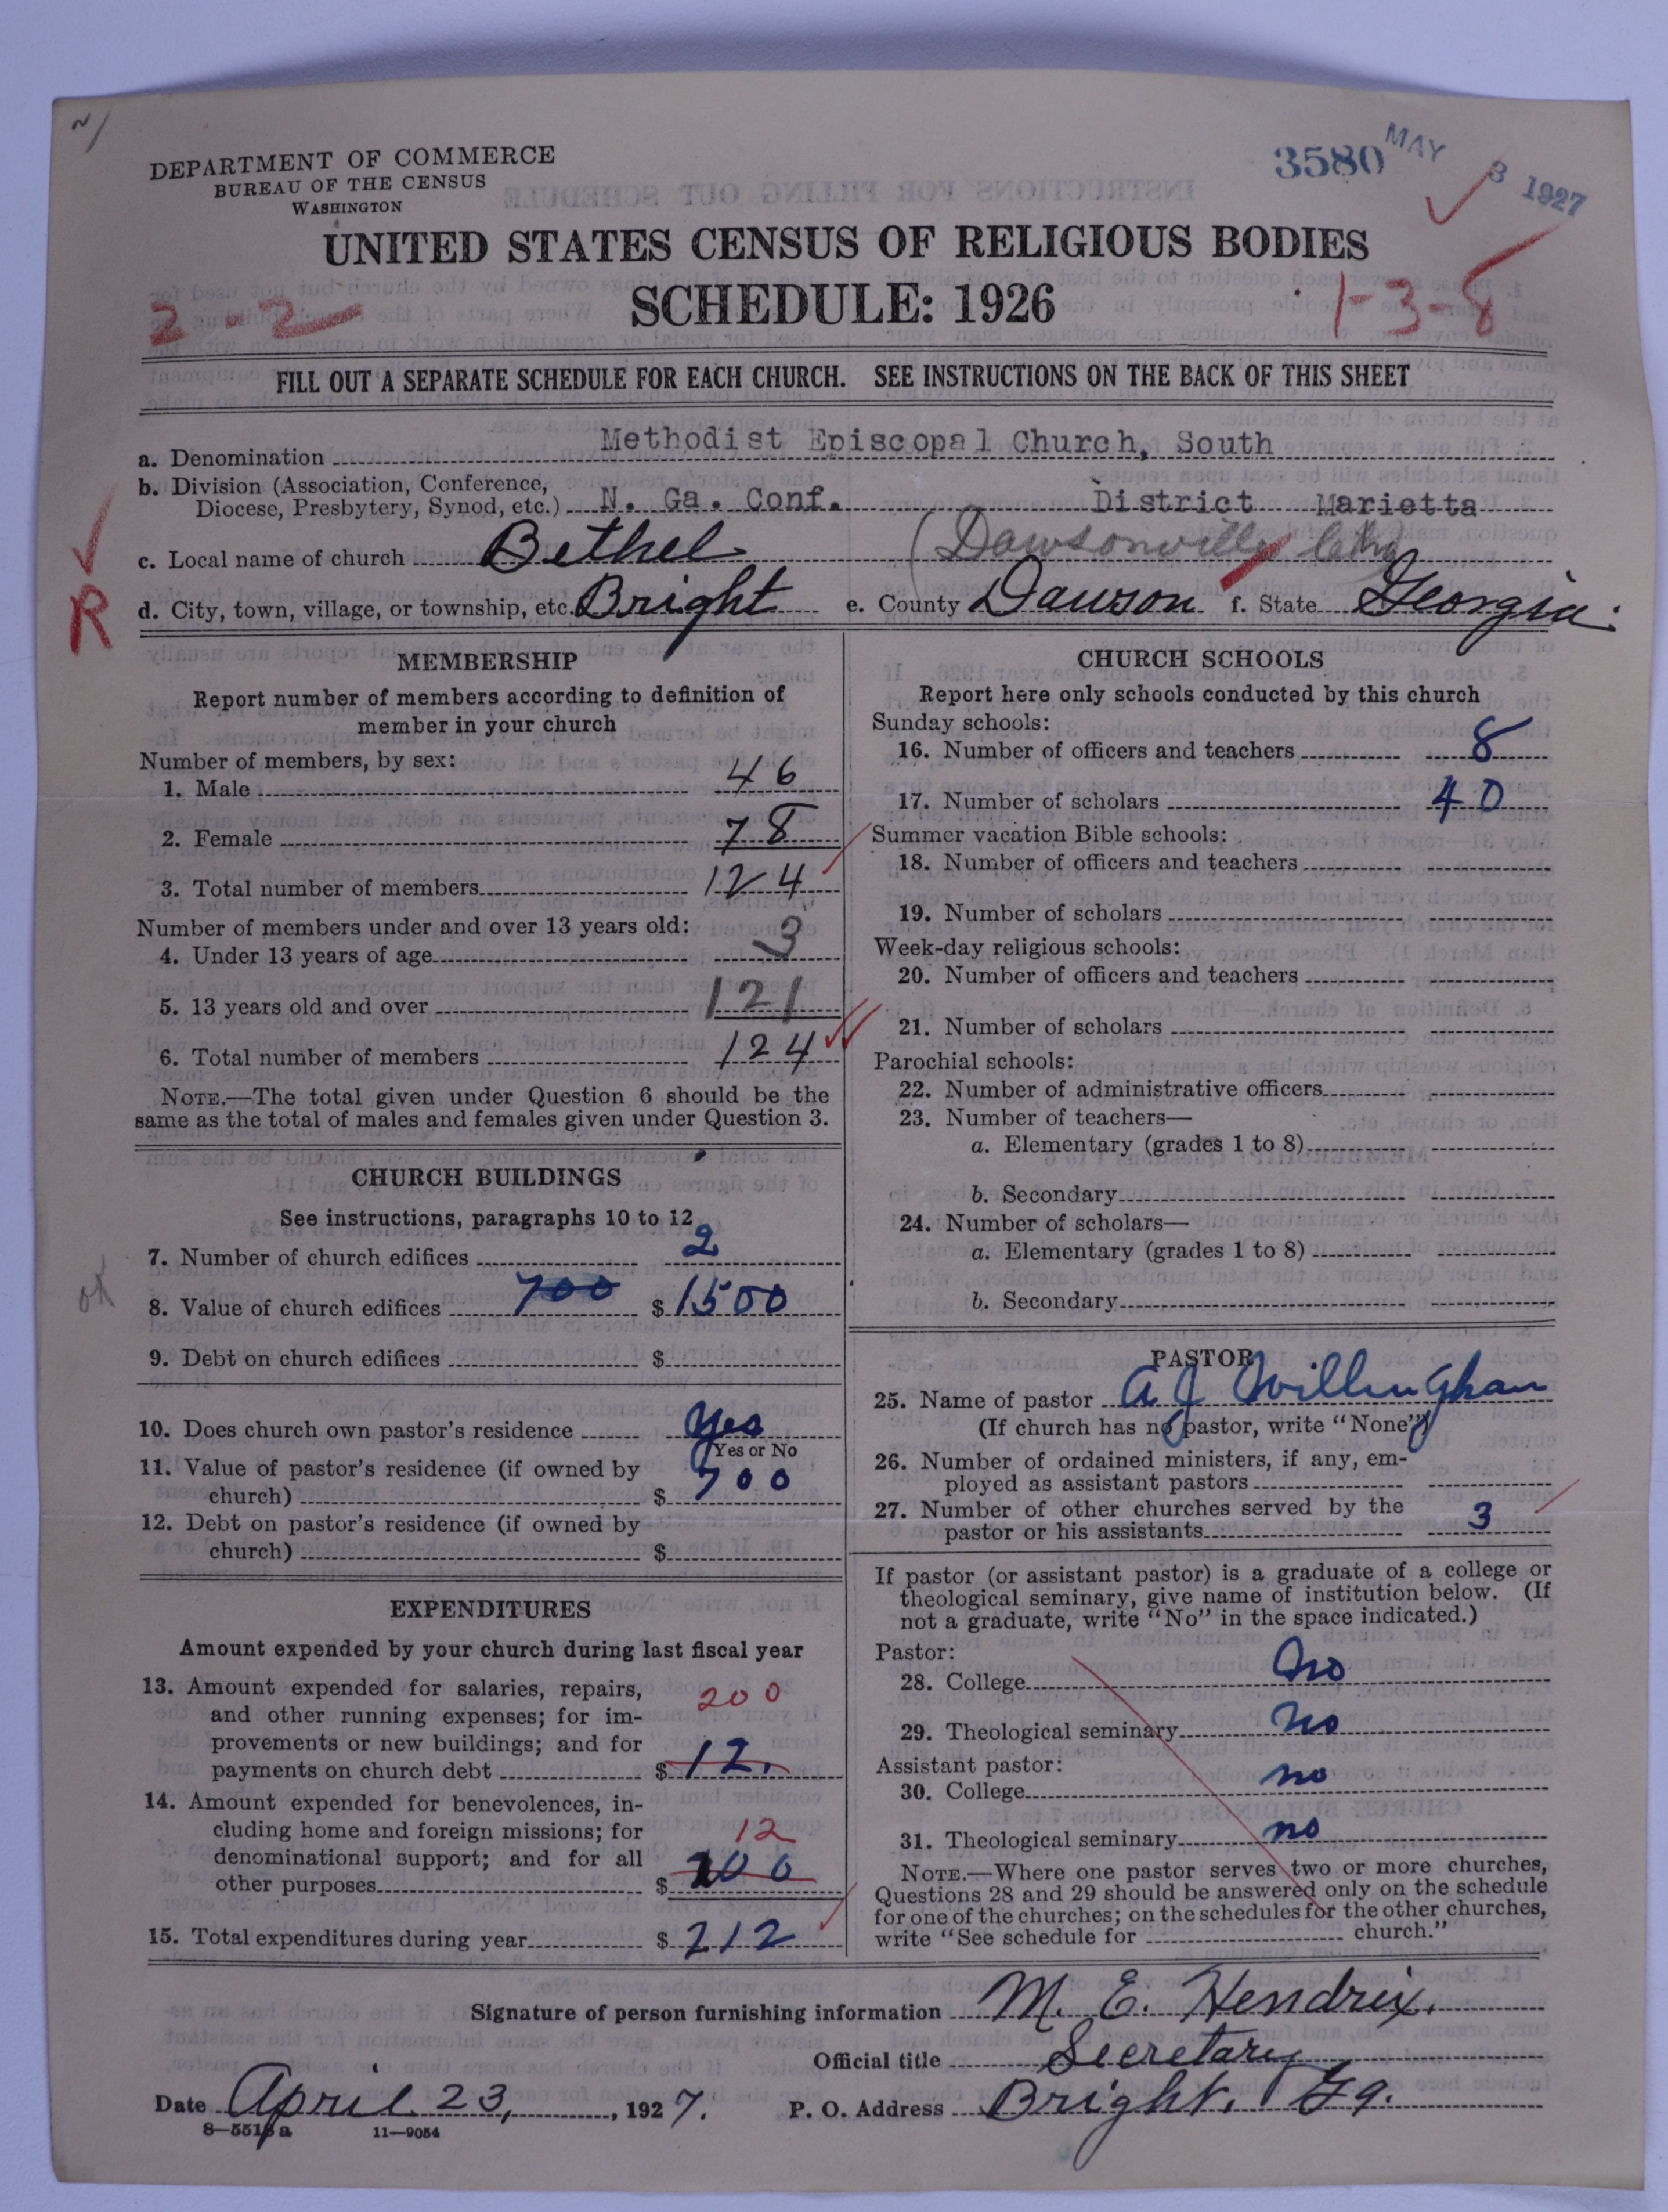 DEPARTMENT OF COMMERCE
BUREAU OF THE CENSUS
WASHINGTON
3580
MAY 3 1927
UNITED STATES CENSUS OF RELIGIOUS BODIES
SCHEDULE: 1926
2-2
1-3-8
FILL OUT A SEPARATE SCHEDULE FOR EACH CHURCH. SEE INSTRUCTIONS ON THE BACK OF THIS SHEET
a. Denomination Methodist Episcopal Church, South
b. Division (Association, Conference,
Diocese, Presbytery, Synod, etc.) N. Ga. Conf. District Marietta
c. Local name of church Bethel (Dawsonville
R
d. City, town, village, or township, etc. Bright e. County Dawson f. State Georgia.
MEMBERSHIP
Report number of members according to definition of
member in your church
Number of members, by sex:
1. Male 46
2. Female 78
3. Total number of members 124
Number of members under and over 13 years old:
4. Under 13 years of age 3
5. 13 years old and over 121
6. Total number of members 124
NOTE.—The total given under Question 6 should be the
same as the total of males and females given under Question 3.
CHURCH BUILDINGS
See instructions, paragraphs 10 to 12
7. Number of church edifices 2
ok
8. Value of church edifices 700 $ 1500
9. Debt on church edifices $
10. Does church own pastor's residence Yes
Yes or No
11. Value of pastor's residence (if owned by
church) $ 700
12. Debt on pastor's residence (if owned by
church) $
EXPENDITURES
Amount expended by your church during last fiscal year
13. Amount expended for salaries, repairs,
and other running expenses; for im- 200
provements or new buildings; and for
payments on church debt $ 12.
14. Amount expended for benevolences, in-
cluding home and foreign missions; for 12
denominational support; and for all
other purposes $ 200
15. Total expenditures during year $ 212
CHURCH SCHOOLS
Report here only schools conducted by this church
Sunday schools:
16. Number of officers and teachers 8
17. Number of scholars 40
Summer vacation Bible schools:
18. Number of officers and teachers
19. Number of scholars
Week-day religious schools:
20. Number of officers and teachers
21. Number of scholars
Parochial schools:
22. Number of administrative officers
23. Number of teachers—
a. Elementary (grades 1 to 8)
b. Secondary
24. Number of scholars—
a. Elementary (grades 1 to 8)
b. Secondary
PASTOR
25. Name of pastor A J Willingham
(If church has no pastor, write "None")
26. Number of ordained ministers, if any, em-
ployed as assistant pastors
27. Number of other churches served by the
pastor or his assistants 3
If pastor (or assistant pastor) is a graduate of a college or
theological seminary, give name of institution below. (If
not a graduate, write "No" in the space indicated.)
Pastor:
28. College No
29. Theological seminary No
Assistant pastor:
30. College no
31. Theological seminary no
NOTE.—Where one pastor serves two or more churches,
Questions 28 and 29 should be answered only on the schedule
for one of the churches; on the schedules for the other churches,
write "See schedule for church."
Signature of person furnishing information M. E. Hendrix.
Official title Secretary
Date April 23, , 1927. P. O. Address Bright, Ga.
8—5513a 11—9054